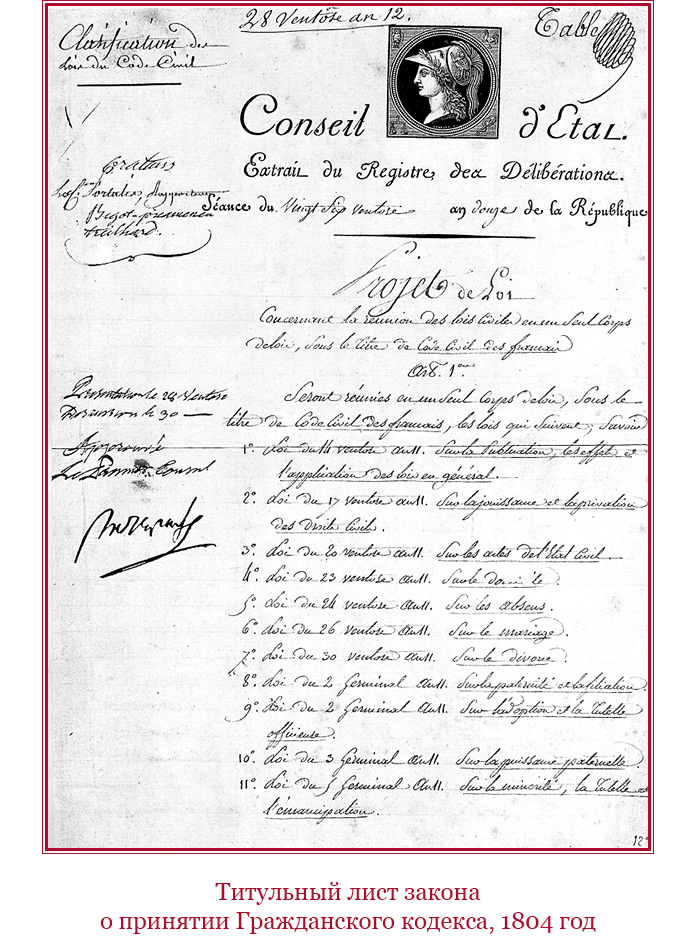 28 Ventôse an 12.
Table
Classification des
Lois du Code Civil
Conseil d'Etat.
Extrait du Registre des Délibérations.
Portalis,
Bigot-preameneu
Treilhard.
Séance du Vingt Sept ventose an douze de la République
Projet de Loi
Concernant la réunion des lois civiles en un seul Corps
de lois, sous le titre de Code Civil des français
Art. 1er
Présentation le 24 Ventose
Discussion le 30
Approuvé
Le Premier Consul
Seront réunies en un seul Corps de lois, sous le
titre de Code Civil des français, les lois qui suivent; savoir
1º. Loi du 14 ventose an 11. Sur la Publication, les effets et
l'application des lois en général.
2º. Loi du 17 ventose an 11. Sur la jouissance et la privation
des droits civils.
3º. Loi du 20 ventose an 11. Sur les actes de l'Etat Civil.
4º. Loi du 23 ventose an 11. Sur le domicile.
5º. Loi du 24 ventose an 11. Sur les absens.
6º. Loi du 26 ventose an 11. Sur le mariage.
7º. Loi du 30 ventose an 11. Sur le divorce.
8º. Loi du 2 Germinal an 11. Sur la paternité et la filiation.
9º. Loi du 2 Germinal an 11. Sur l'adoption et la Tutelle
officieuse.
10º. Loi du 3 Germinal an 11. Sur la puissance paternelle.
11º. Loi du 5 Germinal an 11. Sur la minorité, la Tutelle et
l'émancipation.
Титульный лист закона
о принятии Гражданского кодекса, 1804 год